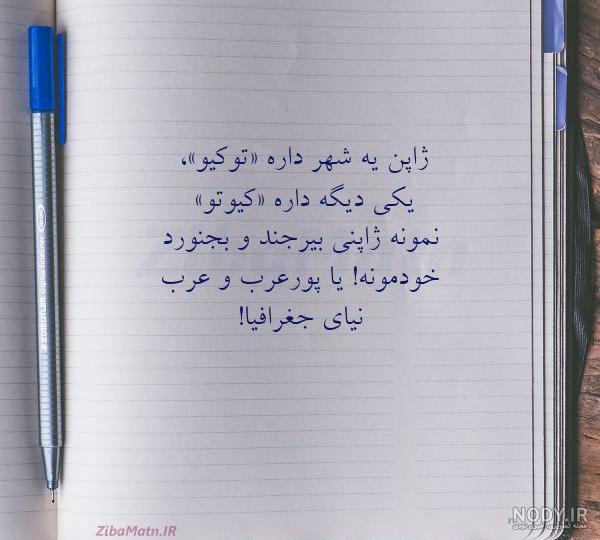 ژاپن یه شهر داره «توکیو»،
یکی دیگه داره «کیوتو»
نمونه ژاپنی بیرجند و بجنورد
خودمونه! یا پورعرب و عرب
نیای جغرافیا!
ZibaMatn.IR
NODY.IR